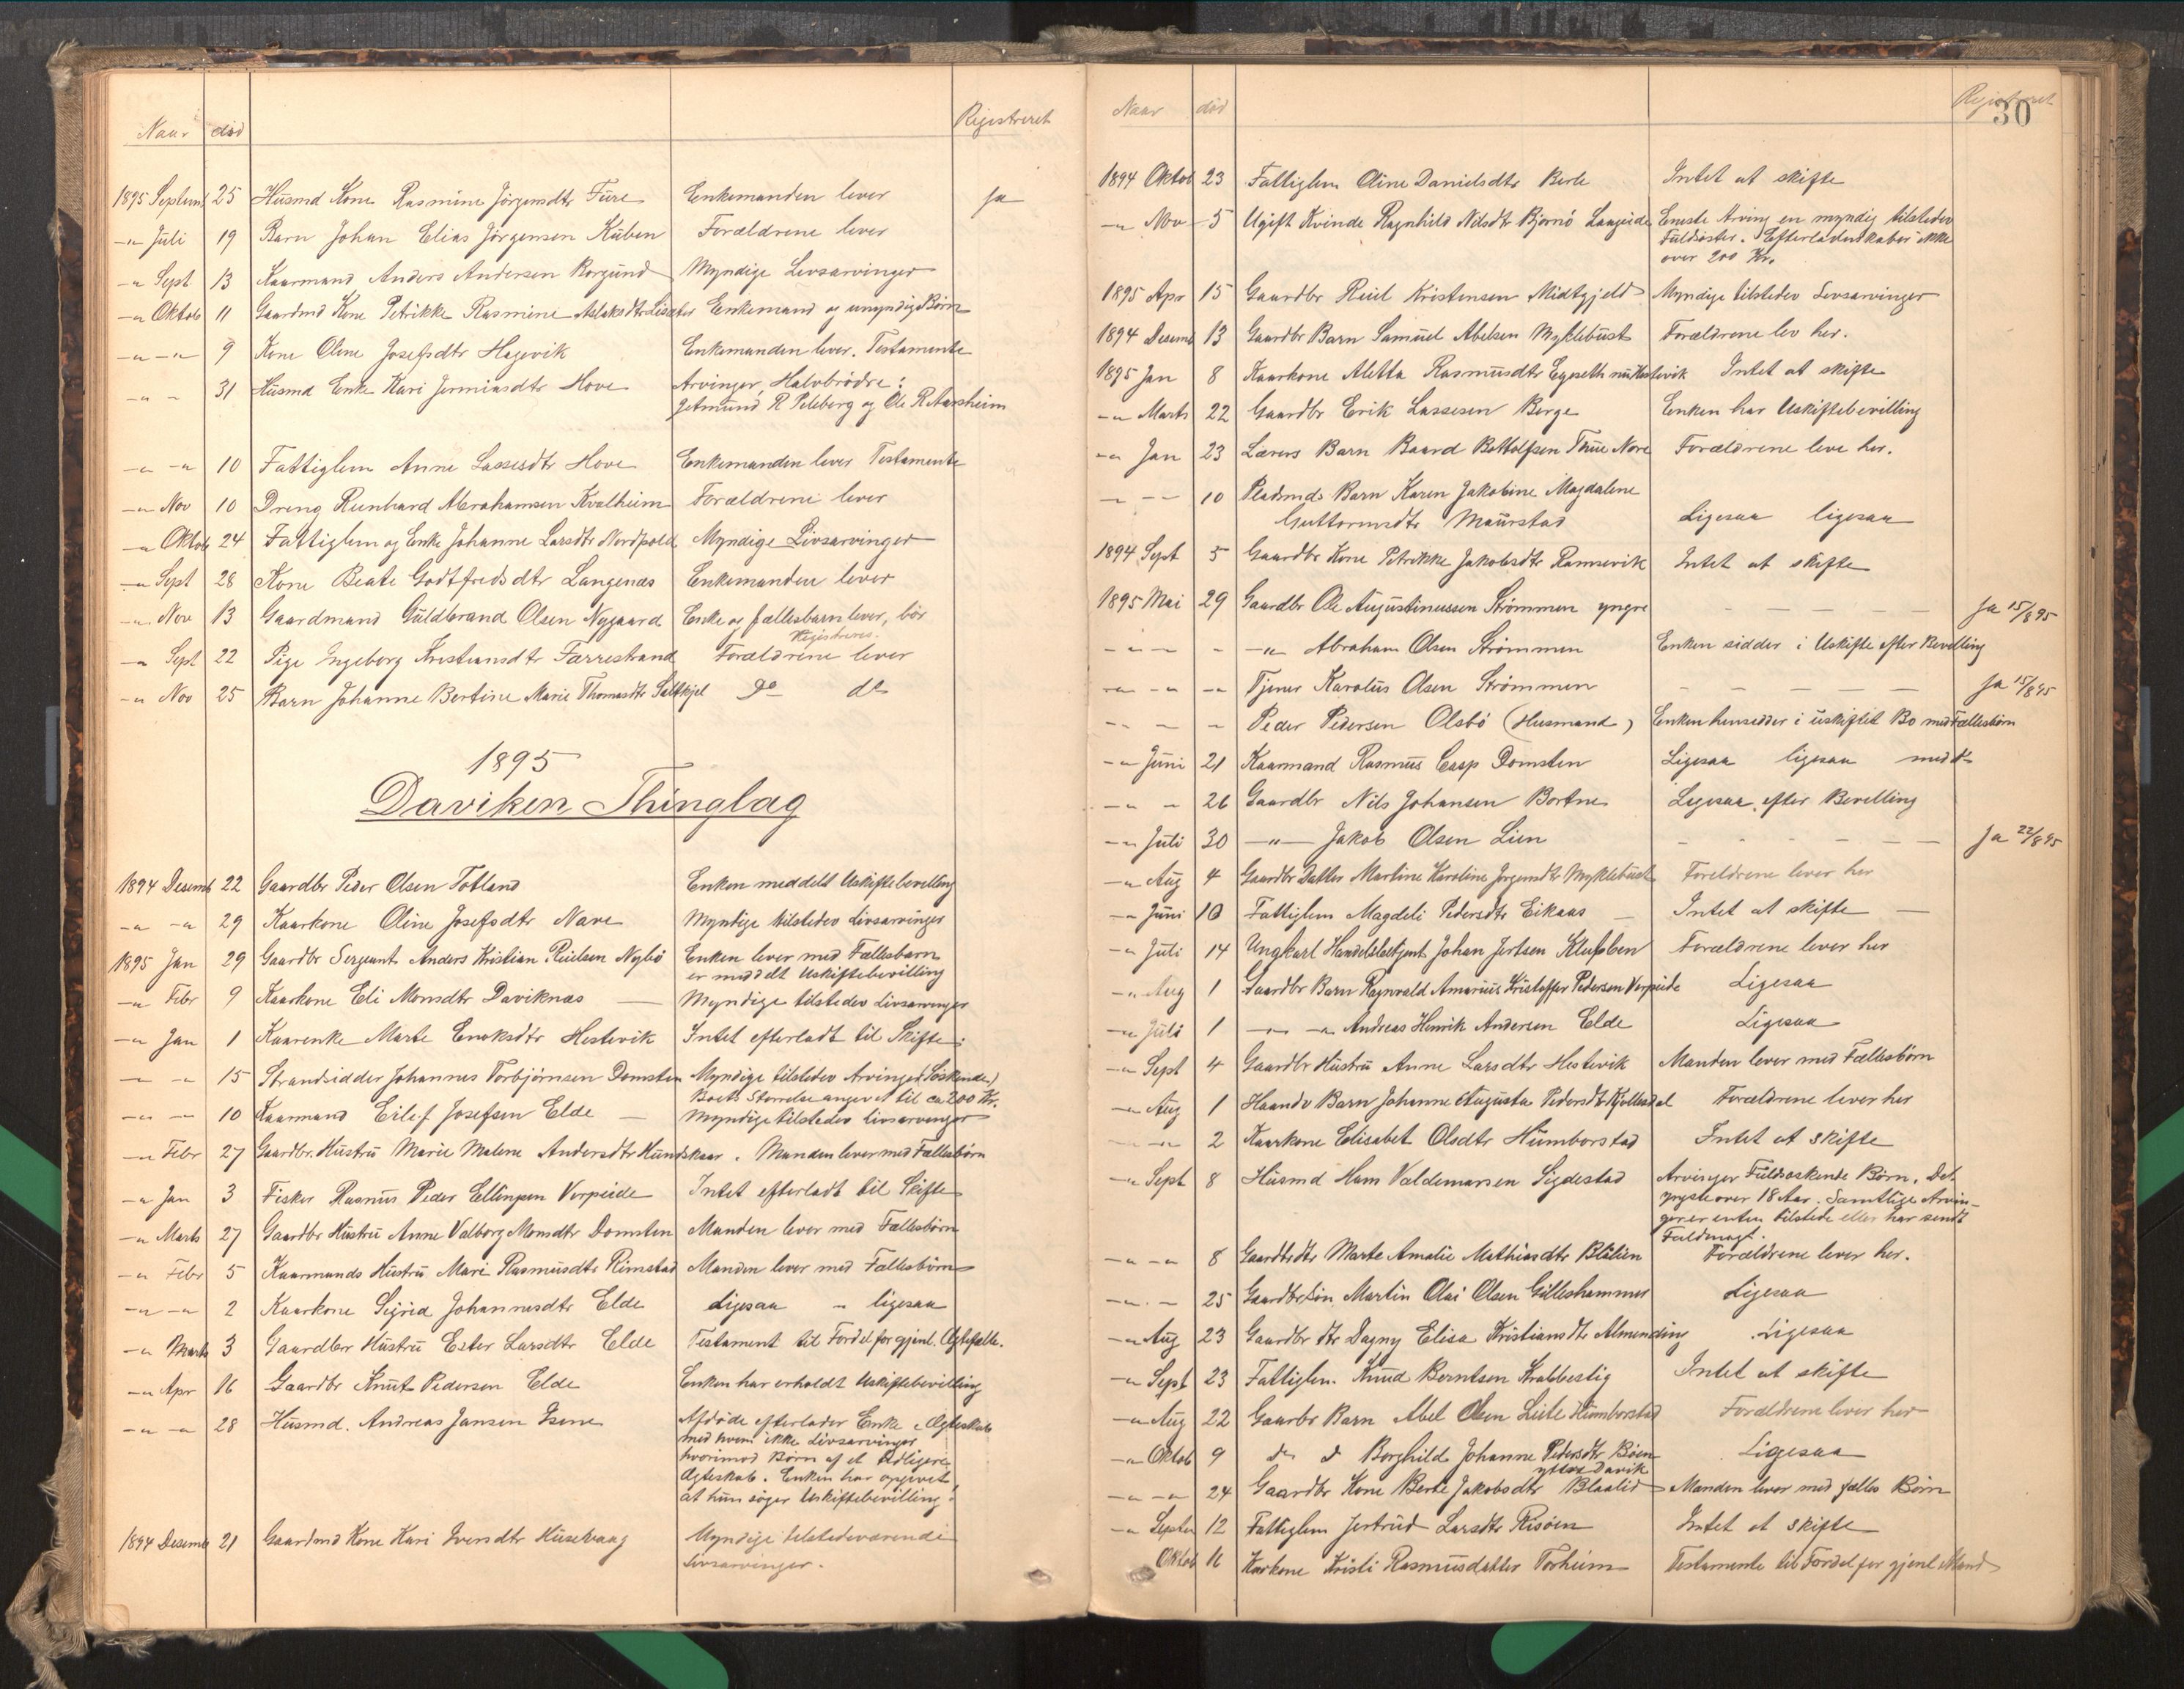 Naar død Registreret
1895 Septemb 25 Husmd Kone Rasmine Jörgensdtr Fure Enkemanden lever Ja
-"- Juli 19 Barn Johan Elias Jörgensen Kuben Forældrene lever
-"- Sept 13 Kaarmand Anders Andersen Borgund Myndige Livsarvinger
-"- Oktob 11 Gaardmd Kone Petrikke Rasmine Aslaksdtr Liset Enkemand og umyndig Børn
-"- -"- 9 Kone Oline Josefsdtr Hagevik Enkemanden lever. Testamente
-"- - 31 Husmd Enke Kari Jermiasdtr Hove Arvinger, Halvbrödre:
Getmund R Peleberg og Ole R Aarsheim
-"- -"- 10 Fattiglem Anne Lassesdtr Hove Enkemanden lever Testamente
-"- Nov 10 Dreng Reinhard Abrahamsen Kvalheim Forældrene lever
-"- Oktob 24 Fattiglem og Enke Johanne Larsdtr Nordpold Myndige Livsarvinger
-"- Sept 28 Kone Beate Godtfredsdtr Langenæs Enkemanden lever
-"- Nov 13 Gaardmand Guldbrand Olsen Nygaard Enke og fællesbarn lever, bör
Registreres.
-"- Sept 22 Pige Ingeborg Kristiansdtr Færrestrand Forældrene lever
-"- Nov 25 Barn Johanne Bertine Marie Thomasdtr Saltkjel Do do
1895
Daviken Thinglag
1894 Desemb 22 Gaardbr Peder Olsen Totland Enken meddelt Uskiftebevilling
-"- -"- 29 Kaarkone Oline Josefsdtr Nave Myndige tilstedev Livsarvinger
1895 Jan 29 Gaardbr Sergeant Anders Kristian Reielsen Nybö Enken lever med Fællesbarn
er meddelt Uskiftebevilling
-"- Febr 9 Kaarkone Eli Monsdtr Daviknæs Myndige tilstedev Livsarvinger
-"- Jan 1 Kaarenke Marte Enoksdtr Hestevik Intet efterladt til Skifte
-"- -"- 15 Strandsidder Johannes Torbjörnsen Domsten Myndige tilstedev Arvinger (Söskende)
Boets Störrelse angivet til ca 200 Kr.
-"- -"- 10 Kaarmand Eilef Josefsen Elde Myndige tilstedev Livsarvinger
-"- Febr 27 Gaardbr. Hustru Marie Malene Andersdtr Hundskaar. Manden lever med Fællesbörn
-"- Jan 3 Fisker Rasmus Peder Ellingsen Verpeide Intet efterladt til Skifte
-"- Marts 27 Gaardbr Hustru Anne Valborg Monsdtr Domsten Manden lever med Fællesbörn
-"- Febr 5 Kaarmands Hustru Mari Rasmusdtr Rimstad Manden lever med Fællesbörn
-"- -"- 2 Kaarkone Sigrid Johannesdtr Elde Ligesaa - ligesaa
-"- Marts 3 Gaardbr Hustru Ester Larsdtr Elde Testament til Fordel for gjenl. Ægtefælle.
-"- Apr 16 Gaardbr Knut Pedersen Elde Enken har erholdt Uskiftebevilling
-"- -"- 28 Husmd. Andreas Jansen Isene Afdöde efterlader Enke i Ægteskab
med hvem ikke Livsarvinger
hvorimod Börn af et tidligere
Ægteskab. Enken har opgivet,
at hun söger Uskiftebevilling.
1894 Desemb 21 Gaardmd Kone Kari Iversdtr Husevaag Myndige tilstedeværende
Livsarvinger.
Naar död Registreret
30
1894 Oktob 23 Fattiglem Oline Danielsdtr Berle Intet at skifte
-"- Nov 5 Ugift Kvinde Ragnhild Nilsdtr Bjornö Langeide Eneste Arving en myndig tilstedev
Fuldsöster. Efterladenskaber ikke
over 200 Kr.
1895 Apr 15 Gaardbr Reiel Kristensen Midtgjeld Myndige tilstedev Livsarvinger
1894 Desemb 13 Gaardbr Barn Samuel Abelsen Myklebust Forældrene lev her.
1895 Jan 8 Kaarkone Aletta Rasmusdtr Egeseth nu Hestevik Intet at skifte
-"- Marts 22 Gaardbr Erik Lassesen Berge Enken har Uskiftebevilling
-"- Jan 23 Lærers Barn Baard Bottolfsen Thue Nore Forældrene leve her.
-"- -- 10 Pladsmds Barn Karen Jakobine Magdalene
Guttormsdtr Maurstad Ligesaa ligesaa
1894 Sept 5 Gaardbr Kone Petrikke Jakobsdtr Ramsevik Intet at skifte
1895 Mai 29 Gaardbr Ole Augustinussen Strömmen yngre - - - - - Ja 15/8 95
-"- - - -"- Abraham Olsen Strömmen Enken sidder i Uskifte efter Bevilling
-"- -"- -"- Tjener Karolus Olsen Strömmen - - - - - Ja 15/8 95
-- - - Peder Pedersen Olsbö (Husmand) Enken hensidder i uskiftet Bo med Fællesbörn
-"- Juni 21 Kaarmand Rasmus Casp Domsten Ligesaa ligesaa med do
-"- - 26 Gaardbr Nils Johansen Bortne Ligesaa efter Bevilling
-"- Juli 30 -"- Jakob Olsen Lien - - - - - Ja 22/8 95
-"- Aug 4 Gaardbr Datter Martine Karoline Jörgensdtr Myklebust Foreldrene lever her
-"- Juni 10 Fattiglem Magdeli Pedersdtr Eikaas Intet at skifte
-"- Juli 14 Ungkarl Handelsbetjent Johan Jertsen Klufsben Forældrene lever her
-"- Aug 1 Gaardbr Barn Ragnvald Amarius Kristoffer Pedersen Verpeide Ligesaa
-"- Juli 1 -"- -"- Andreas Henrik Andersen Elde Ligesaa
-"- Sept 4 Gaardbr Hustru Anne Larsdtr Hestevik Manden lever med Fællesbörn
-"- Aug 1 Haandv Barn Johanne Augusta Pedersdtr Kjöllesdal Forældrene lever her
-"- 2 Kaarkone Elisabet Olsdtr Humborstad Intet at skifte
-"- Sept 8 Husmd Hans Valdemarsen Sigdestad Arvinger Fuldsöskende Börn. Det
yngste over 18 Aar. Samtlige Arvin-
ger er enten tilstede eller har sendt
Fuldmagt.
-"- -"- 8 Gaardbrdtr Marte Amalie Mathiasdtr Blålien Forældrene lever her.
-"- - 25 Gaardbr Sön Martin Olai Olsen Gilleshammer Ligesaa
-"- Aug 23 Gaardbr dtr Dagny Elisa Kristiansdtr Almending Ligesaa
-"- Sept 23 Fattiglem Knud Berntsen Krabbestig Intet at skifte
-"- Aug 22 Gaarbr Barn Abel Olsen Liete Humborstad Forældrene lever her
-"- Oktob 9 do d Borghild Johanne Pedersdtr Böen Ligesaa
ytter Davik
-"- -"- 24 Gaardbr Kone Berte Jakobsdtr Blaalid Manden lever med fælles Börn
-"- Septer 12 Fattiglem Jertrud Larsdtr Risöen Intet at skifte
Oktob 16 Karkone Kristi Rasmusdatter Torheim Testamente til Fordel for gjenl Mand